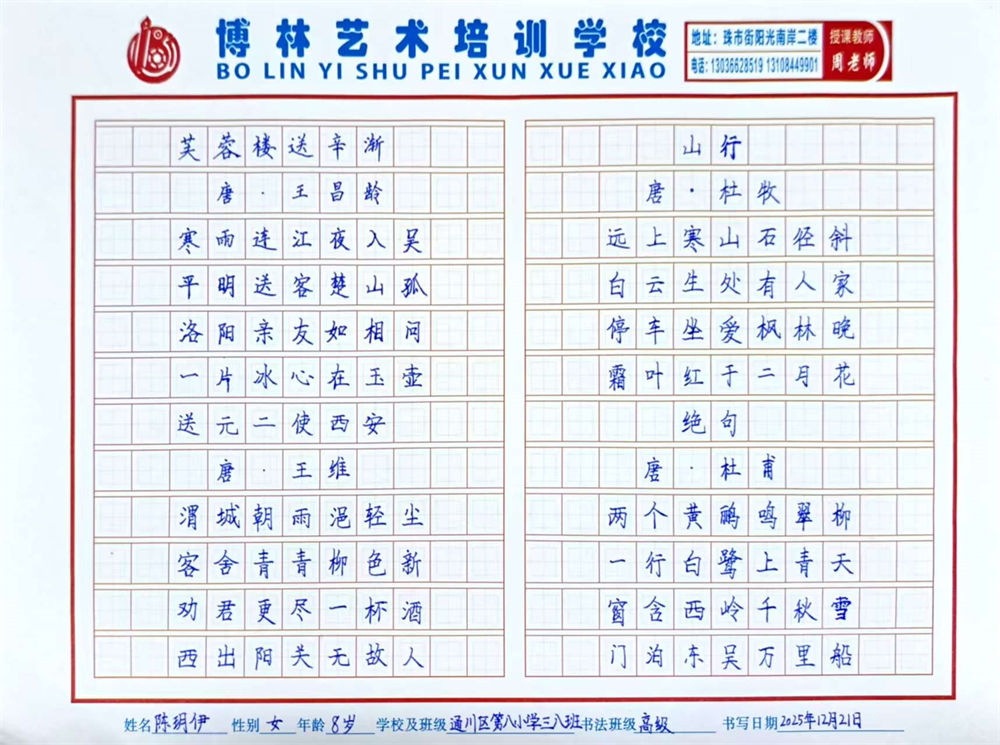 博林艺术培训学校
BO LIN YI SHU PEI XUN XUE XIAO
地址：珠市街阳光南岸二楼
电话：13036628519 13108449901
授课教师
周老师
芙蓉楼送辛渐
唐·王昌龄
寒雨连江夜入吴
平明送客楚山孤
洛阳亲友如相问
一片冰心在玉壶
送元二使西安
唐·王维
渭城朝雨浥轻尘
客舍青青柳色新
劝君更尽一杯酒
西出阳关无故人
山行
唐·杜牧
远上寒山石径斜
白云生处有人家
停车坐爱枫林晚
霜叶红于二月花
绝句
唐·杜甫
两个黄鹂鸣翠柳
一行白鹭上青天
窗含西岭千秋雪
门泊东吴万里船
姓名 陈玥伊 性别 女 年龄 8岁 学校及班级 通川区第八小学三八班 书法班级 高级 书写日期 2025年12月21日